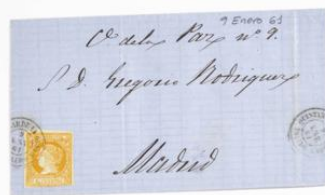 9 Enero 61
C.e de la Paz nº 9.
S. D. Gregorio Rodriguez
Madrid